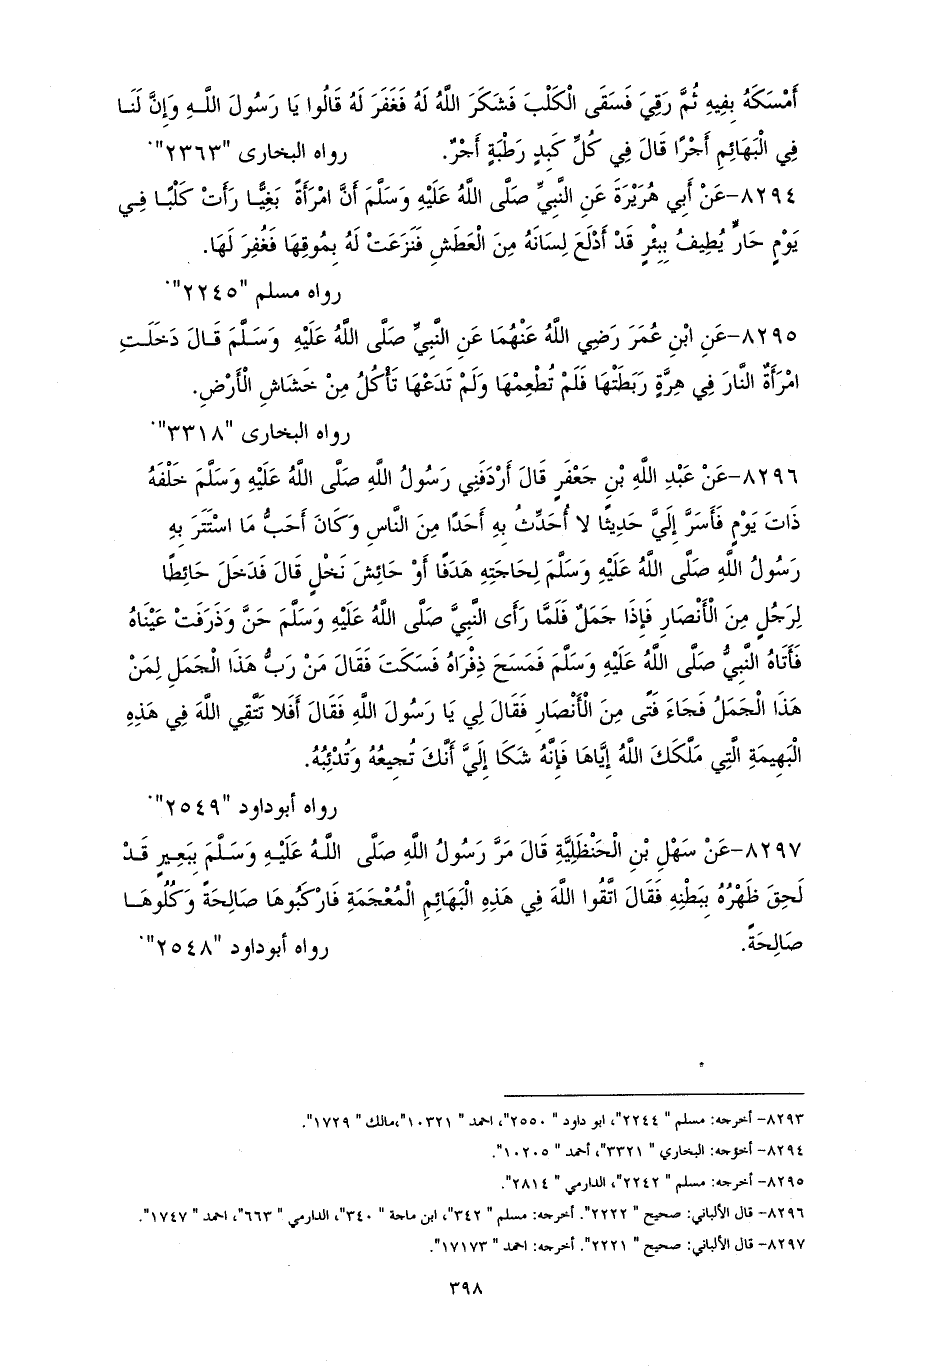 أَمْسَكَهُ بِفِيهِ ثُمَّ رَقِيَ فَسَقَى الْكَلْبَ فَشَكَرَ اللَّهُ لَهُ فَغَفَرَ لَهُ قَالُوا يَا رَسُولَ اللَّهِ وَإِنَّ لَنَا
فِي الْبَهَائِمِ أَجْرًا قَالَ فِي كُلِّ كَبِدٍ رَطْبَةٍ أَجْرٌ. رواه البخارى "٢٣٦٣".
٨٢٩٤-عَنْ أَبِي هُرَيْرَةَ عَنِ النَّبِيِّ صَلَّى اللَّهُ عَلَيْهِ وَسَلَّمَ أَنَّ امْرَأَةً بَغِيًّا رَأَتْ كَلْبًا فِي
يَوْمٍ حَارٍّ يُطِيفُ بِبِئْرٍ قَدْ أَدْلَعَ لِسَانَهُ مِنَ الْعَطَشِ فَنَزَعَتْ لَهُ بِمُوقِهَا فَغُفِرَ لَهَا.
رواه مسلم "٢٢٤٥".
٨٢٩٥-عَنِ ابْنِ عُمَرَ رَضِي اللَّهُ عَنْهُمَا عَنِ النَّبِيِّ صَلَّى اللَّهُ عَلَيْهِ وَسَلَّمَ قَالَ دَخَلَتِ
امْرَأَةٌ النَّارَ فِي هِرَّةٍ رَبَطَتْهَا فَلَمْ تُطْعِمْهَا وَلَمْ تَدَعْهَا تَأْكُلُ مِنْ خَشَاشِ الْأَرْضِ.
رواه البخارى "٣٣١٨".
٨٢٩٦-عَنْ عَبْدِ اللَّهِ بْنِ جَعْفَرٍ قَالَ أَرْدَفَنِي رَسُولُ اللَّهِ صَلَّى اللَّهُ عَلَيْهِ وَسَلَّمَ خَلْفَهُ
ذَاتَ يَوْمٍ فَأَسَرَّ إِلَيَّ حَدِيثًا لا أُحَدِّثُ بِهِ أَحَدًا مِنَ النَّاسِ وَكَانَ أَحَبُّ مَا اسْتَتَرَ بِهِ
رَسُولُ اللَّهِ صَلَّى اللَّهُ عَلَيْهِ وَسَلَّمَ لِحَاجَتِهِ هَدَفًا أَوْ حَائِشَ نَخْلٍ قَالَ فَدَخَلَ حَائِطًا
لِرَجُلٍ مِنَ الْأَنْصَارِ فَإِذَا جَمَلٌ فَلَمَّا رَأَى النَّبِيَّ صَلَّى اللَّهُ عَلَيْهِ وَسَلَّمَ حَنَّ وَذَرَفَتْ عَيْنَاهُ
فَأَتَاهُ النَّبِيُّ صَلَّى اللَّهُ عَلَيْهِ وَسَلَّمَ فَمَسَحَ ذِفْرَاهُ فَسَكَتَ فَقَالَ مَنْ رَبُّ هَذَا الْجَمَلِ لِمَنْ
هَذَا الْجَمَلُ فَجَاءَ فَتًى مِنَ الْأَنْصَارِ فَقَالَ لِي يَا رَسُولَ اللَّهِ فَقَالَ أَفَلا تَتَّقِي اللَّهَ فِي هَذِهِ
الْبَهِيمَةِ الَّتِي مَلَّكَكَ اللَّهُ إِيَّاهَا فَإِنَّهُ شَكَا إِلَيَّ أَنَّكَ تُجِيعُهُ وَتُدْئِبُهُ.
رواه أبوداود "٢٥٤٩".
٨٢٩٧-عَنْ سَهْلِ بْنِ الْحَنْظَلِيَّةِ قَالَ مَرَّ رَسُولُ اللَّهِ صَلَّى اللَّهُ عَلَيْهِ وَسَلَّمَ بِبَعِيرٍ قَدْ
لَحِقَ ظَهْرُهُ بِبَطْنِهِ فَقَالَ اتَّقُوا اللَّهَ فِي هَذِهِ الْبَهَائِمِ الْمُعْجَمَةِ فَارْكَبُوهَا صَالِحَةً وَكُلُوهَا
صَالِحَةً. رواه أبوداود "٢٥٤٨".
٨٢٩٣- أخرجه: مسلم "٢٢٤٤"، ابو داود "٢٥٥٠"، احمد "١٠٣٢١"،مالك "١٧٢٩".
٨٢٩٤- أخرجه: البخاري "٣٣٢١"، أحمد "١٠٢٠٥".
٨٢٩٥- أخرجه: مسلم "٢٢٤٢"، الدارمي "٢٨١٤".
٨٢٩٦- قال الألباني: صحيح "٢٢٢٢". أخرجه: مسلم "٣٤٢"، ابن ماجة "٣٤٠"، الدارمي "٦٦٣"، احمد "١٧٤٧".
٨٢٩٧- قال الألباني: صحيح "٢٢٢١". أخرجه: احمد "١٧١٧٣".
٣٩٨